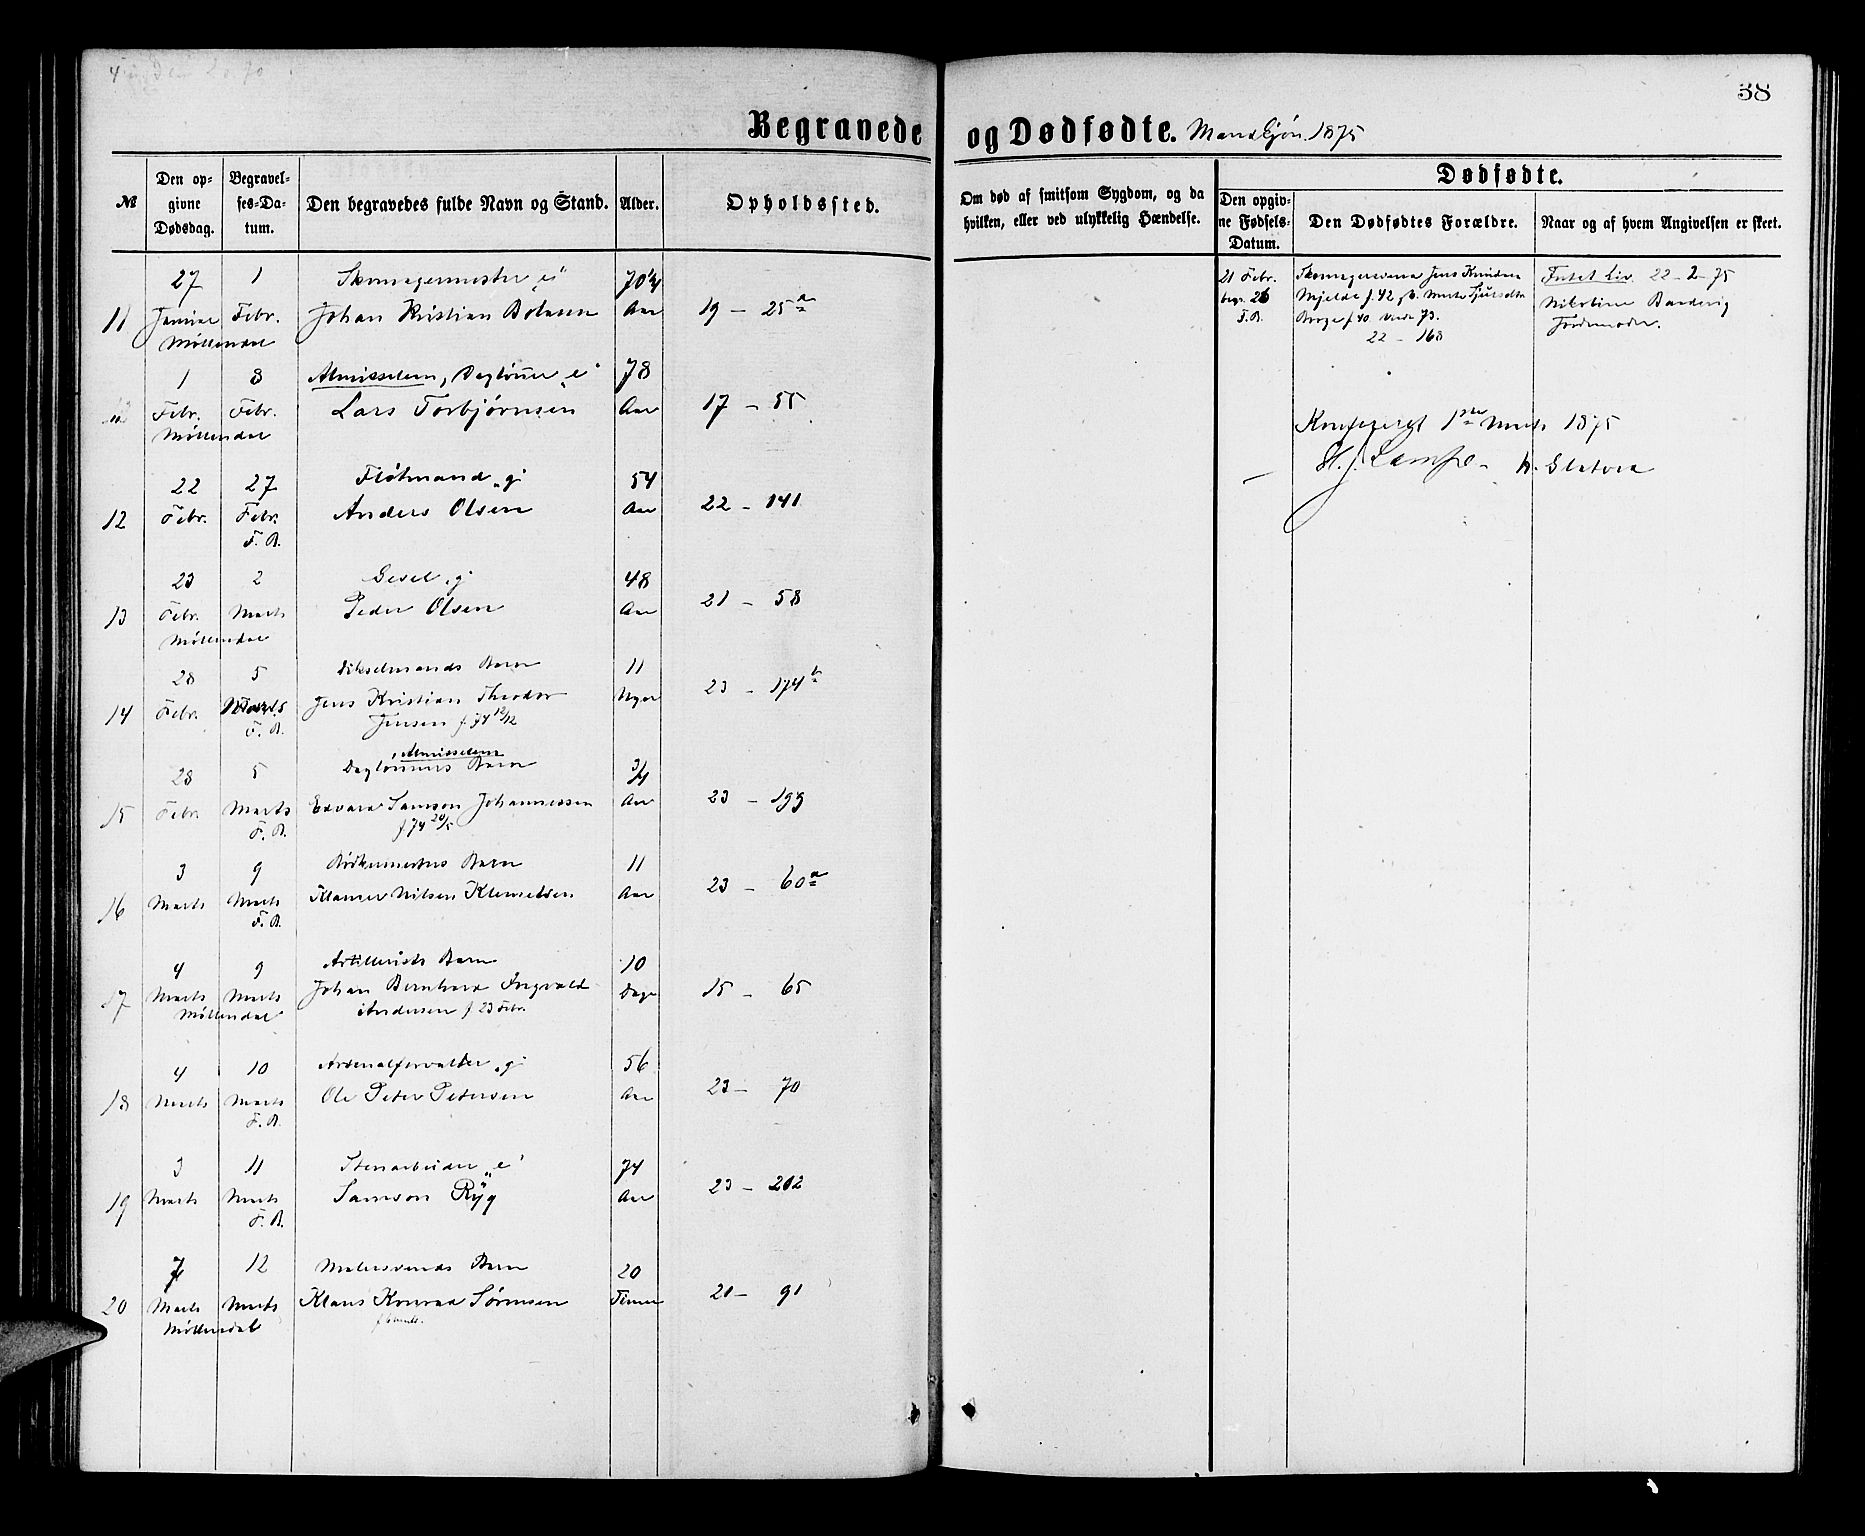 38
Begravede og Dødfødte. Mandkjøn. 1875
№
Den op-
givne
Dødsdag.
Begravel-
ses-Da-
tum.
Den begravedes fulde Navn og Stand.
Alder.
Opholdssted.
Om død af smitsom Sygdom, og da
hvilken, eller ved ulykkelig Hændelse.
Dødfødte.
Den opgiv-
ne Fødsels-
Datum.
Den Dødfødtes Forældre.
Naar og af hvem Angivelsen er skeet.
27 1 Skomagermester „e" 70¼
11 Januar Febr. Johan Kristian Aar 19 – 25a
Møllendal
1 8 Almisselem, Daglønner „e" 78
Febr. Febr. Lars Torbjørnsen Aar 17 – 55
Møllendal
22 27 Fløtmand „g" 54
12 Febr. Febr. Anders Olsen Aar 22 – 141
F. B.
23 2 Gesel „g" 48
13 Febr. Marts Peder Olsen Aar 21 – 58
Møllendal
28 5 Barn 11
14 Febr. Marts Jens Kristian Theodor 23 – 174b
F. B. Jensen f. 74 12/12
Almisselem
28 5 Daglønners Barn 3/4
15 Febr. Marts Edvard Samson Johannessen Aar 23 – 193
F. B. f. 74 20/5
3 9 Bødkermesters Barn 11
16 Marts Marts Nilsen Aar 23 – 60a
F. B.
4 9 Artillerists Barn 10
17 Marts Marts Johan Bernhard Ingvald Dage 15 – 65
Møllendal Andersen f. 23 Febr.
4 10 Arsenalforvalter „g" 56
18 Marts Marts Ole Peter Petersen Aar 23 – 70
F. B.
3 11 Stenarbeider „e" 74
19 Marts Marts Samson Ryg Aar 23 – 202
F. B.
7 12 Malersvends Barn 20
20 Marts Marts Klaus Konrad Sørensen Timer 21 – 91
Møllendal
21 Febr. Skomagersvend Jens Knudsen 22–2–75
begr. 26 Mjelde f. 42 Nikoline
F. B. f. 40 73. Jordemoder.
22 – 168
Konfereret 1ste Marts 1875
H. J. Lampe